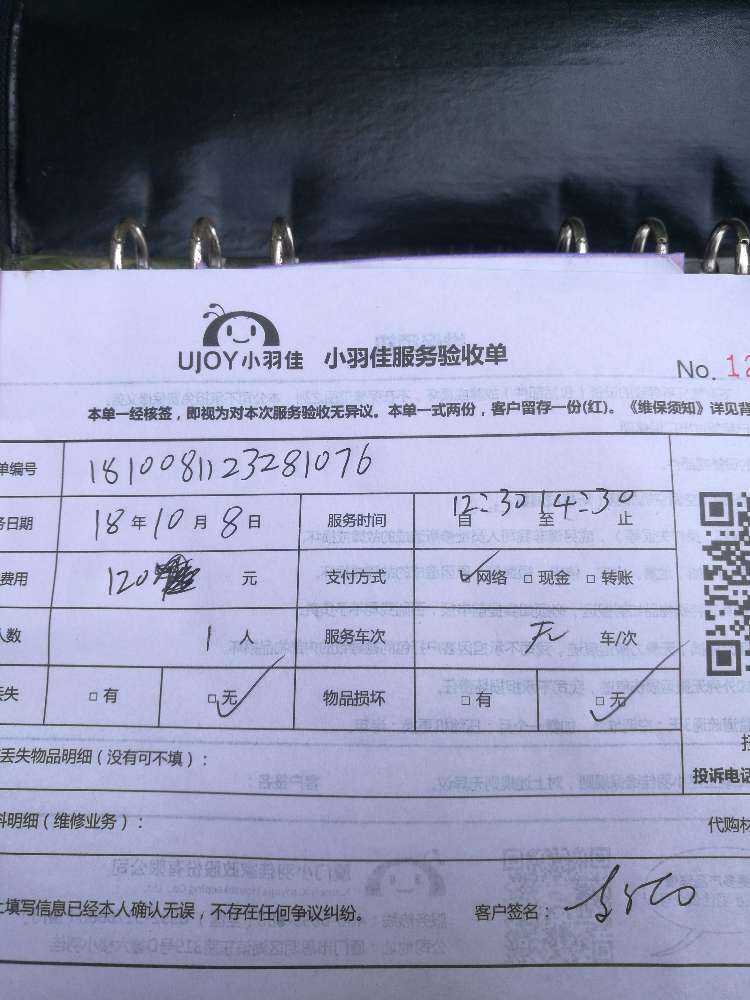 UJOY小羽佳 小羽佳服务验收单
No. 12
本单一经核签，即视为对本次服务验收无异议。本单一式两份，客户留存一份(红)。《维保须知》详见背
单编号 1810081123281076
务日期 18 年 10 月 8 日 服务时间 12:30 自 至 14:30 止
费用 120 元 支付方式 ☑网络 □现金 □转账
人数 1 人 服务车次 无 车/次
丢失 □有 ☑无 物品损坏 □有 ☑无
丢失物品明细（没有可不填）：
投诉电话
料明细（维修业务）：
代购材
上填写信息已经本人确认无误，不存在任何争议纠纷。 客户签名：